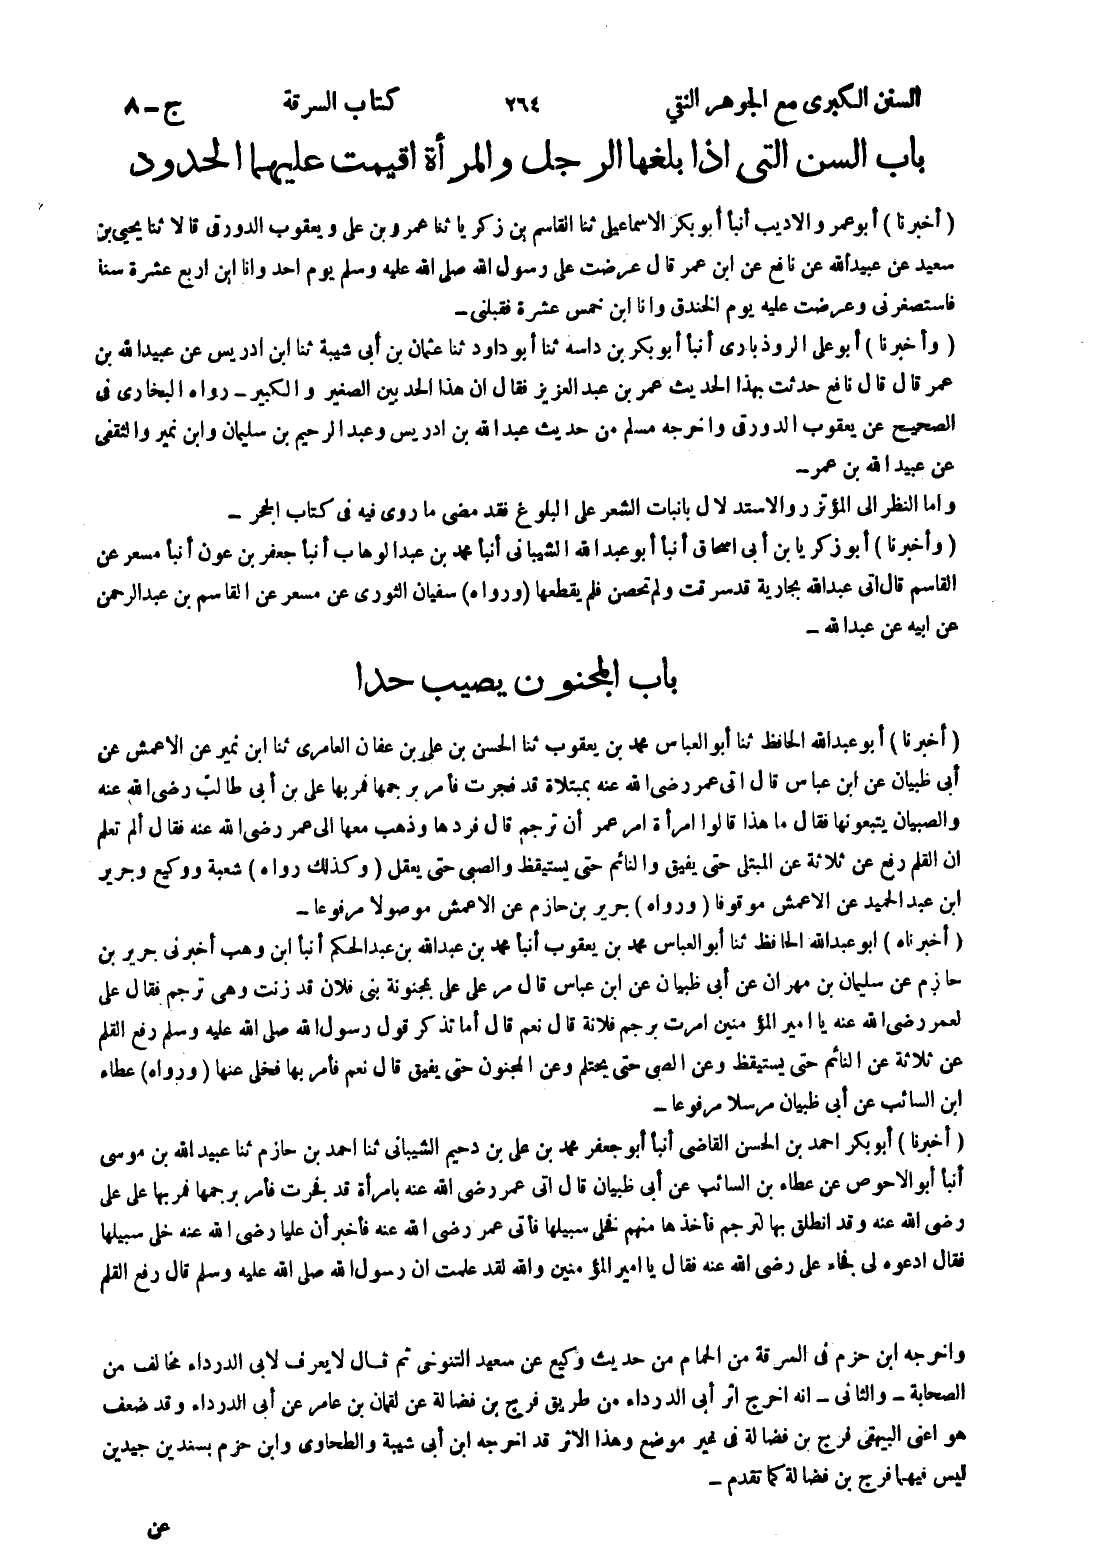 السنن الكبرى مع الجوهر النقي ٢٦٤ كتاب السرقة ج – ٨
باب السن التى اذا بلغها الرجل والمرأة اقيمت عليهما الحدود
( أخبرنا ) أبو عمرو الاديب أنبأ أبو بكر الاسماعيلى ثنا القاسم بن زكريا ثنا عمرو بن على ويعقوب الدورقى قالا ثنا يحيى بن
سعيد عن عبيدالله عن نافع عن ابن عمر قال عرضت على رسول الله صلى الله عليه وسلم يوم احد وانا ابن اربع عشرة سنة
فاستصغرنى وعرضت عليه يوم الخندق وانا ابن خمس عشرة فقبلنى –
( وأخبرنا ) أبو على الروذبارى أنبأ أبو بكر بن داسه ثنا أبو داود ثنا عثمان بن أبى شيبة ثنا ابن ادريس عن عبيدالله بن
عمر قال قال نافع حدثت بهذا الحديث عمر بن عبد العزيز فقال ان هذا الحد بين الصغير والكبير – رواه البخارى فى
الصحيح عن يعقوب الدورقى واخرجه مسلم من حديث عبدالله بن ادريس وعبد الرحيم بن سليمان وابن نمير والثقفى
عن عبيد الله بن عمر –
واما النظر الى المؤتزر والاستدلال بانبات الشعر على البلوغ فقد مضى ما روى فيه فى كتاب الحجر –
( وأخبرنا ) أبو زكريا بن أبى اسحاق أنبأ أبو عبدالله الشيبانى أنبأ محمد بن عبدالوهاب أنبأ جعفر بن عون أنبأ مسعر عن
القاسم قال اتى عبدالله بجارية قد سرقت ولم تحصن فلم يقطعها (ورواه) سفيان الثورى عن مسعر عن القاسم بن عبدالرحمن
عن ابيه عن عبدالله –
باب المجنون يصيب حدا
( أخبرنا ) أبو عبدالله الحافظ ثنا أبو العباس محمد بن يعقوب ثنا الحسن بن على بن عفان العامرى ثنا ابن نمير عن الاعمش عن
أبى ظبيان عن ابن عباس قال اتى عمر رضى الله عنه بمبتلاة قد فجرت فأمر برجمها فمر بها على بن أبى طالب رضى الله عنه
والصبيان يتبعونها فقال ما هذا قالوا امرأة امر عمر أن ترجم قال فردها وذهب معها الى عمر رضى الله عنه فقال ألم تعلم
ان القلم رفع عن ثلاثة عن المبتلى حتى يفيق والنائم حتى يستيقظ والصبى حتى يعقل ( وكذلك رواه ) شعبة ووكيع وجرير
ابن عبد الحميد عن الاعمش موقوفا ( ورواه ) جرير بن حازم عن الاعمش موصولا مرفوعا –
( أخبرناه ) ابو عبدالله الحافظ ثنا أبو العباس محمد بن يعقوب أنبأ محمد بن عبدالله بن عبدالحكم أنبأ ابن وهب أخبرنى جرير بن
حازم عن سليمان بن مهران عن أبى ظبيان عن ابن عباس قال مر على على بمجنونة بنى فلان قد زنت وهى ترجم فقال على
لعمر رضى الله عنه يا امير المؤمنين امرت برجم فلانة قال نعم قال أما تذكر قول رسول الله صلى الله عليه وسلم رفع القلم
عن ثلاثة عن النائم حتى يستيقظ وعن الصبى حتى يحتلم وعن المجنون حتى يفيق قال نعم فأمر بها فخلى عنها ( ورواه) عطاء
ابن السائب عن أبى ظبيان مرسلا مرفوعا –
( أخبرنا ) أبو بكر احمد بن الحسن القاضى أنبأ أبو جعفر محمد بن على بن دحيم الشيبانى ثنا احمد بن حازم ثنا عبيد الله بن موسى
أنبأ أبو الاحوص عن عطاء بن السائب عن أبى ظبيان قال اتى عمر رضى الله عنه بامرأة قد فجرت فأمر برجمها فمر بها على على
رضى الله عنه وقد انطلق بها لترجم فأخذها منهم فخلى سبيلها فأتى عمر رضى الله عنه فأخبر أن عليا رضى الله عنه خلى سبيلها
فقال ادعوه لى فجاء على رضى الله عنه فقال يا امير المؤمنين والله لقد علمت ان رسول الله صلى الله عليه وسلم قال رفع القلم
واخرجه ابن حزم فى السرقة من الحمام من حديث وكيع عن سعيد التنوخى ثم قال لا يعرف لابى الدرداء مخالف من
الصحابة – والثانى – انه اخرج اثر أبى الدرداء من طريق فرج بن فضالة عن لقمان بن عامر عن أبى الدرداء وقد ضعف
هو اعنى البيهقى فرج بن فضالة فى غير موضع وهذا الاثر قد اخرجه ابن أبى شيبة والطحاوى وابن حزم بسندين جيدين
ليس فيهما فرج بن فضالة كما تقدم –
عن